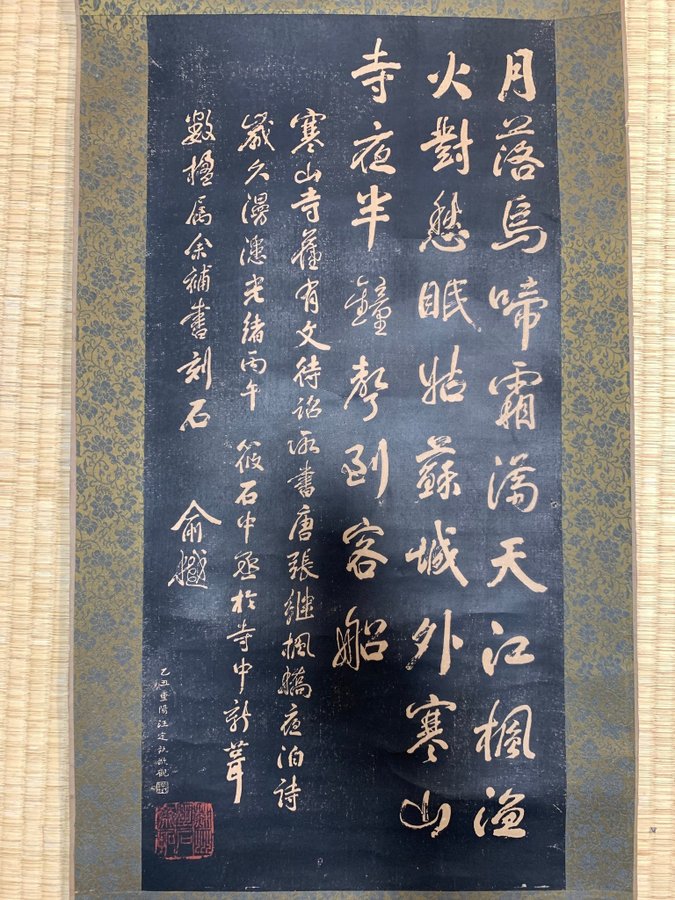 月落烏啼霜滿天江楓漁
火對愁眠姑蘇城外寒山
寺夜半鐘聲到客船
寒山寺舊有文待詔所書唐張繼楓橋夜泊詩
歲久漫漶光緒丙午筱石中丞於寺中新葺
數楹屬余補書刻石
俞樾
乙丑重陽江定敬觀